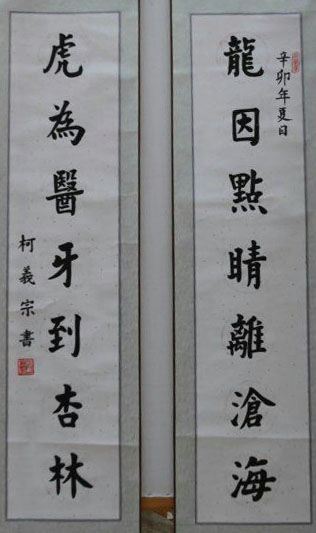 辛卯年夏日
龍因點睛離滄海
虎為醫牙到杏林
柯義宗書